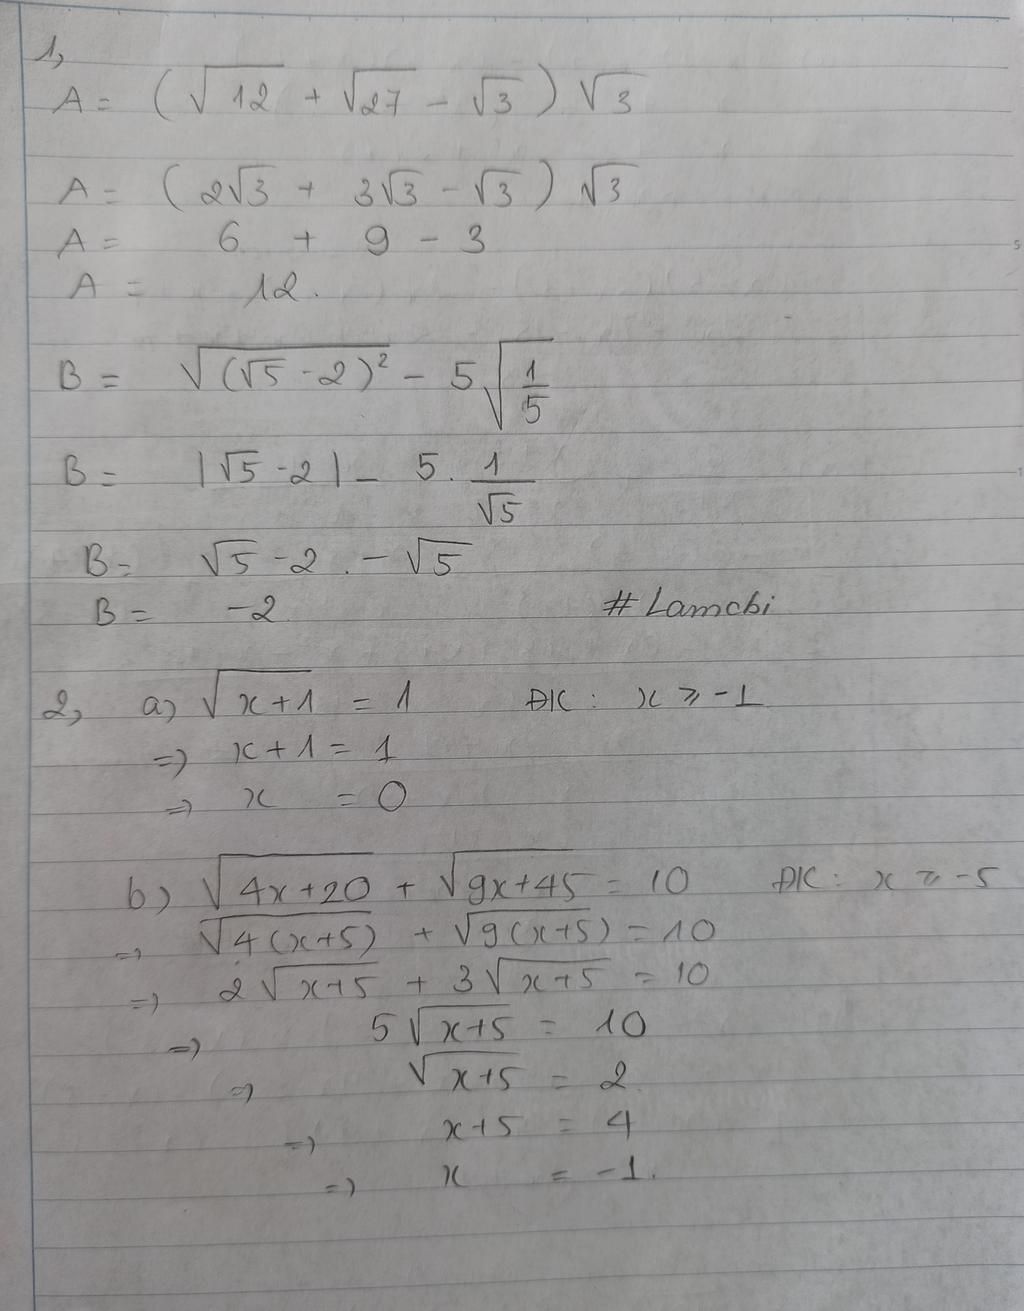 1,
A = (√12 + √27 - √3) √3
A = (2√3 + 3√3 - √3) √3
A = 6 + 9 - 3
A = 12.
B = √(√5 - 2)² - 5√1/5
B = |√5 - 2| - 5. 1/√5
B = √5 - 2 . - √5
B = -2
# Lamchi
2, a) √x+1 = 1 ĐK : x ⩾ -1
=> x + 1 = 1
=> x = 0
b) √4x+20 + √9x+45 = 10 ĐK : x ⩾ -5
=> √4(x+5) + √9(x+5) = 10
=> 2√x+5 + 3√x+5 = 10
=> 5√x+5 = 10
=> √x+5 = 2
=> x+5 = 4
=> x = -1.